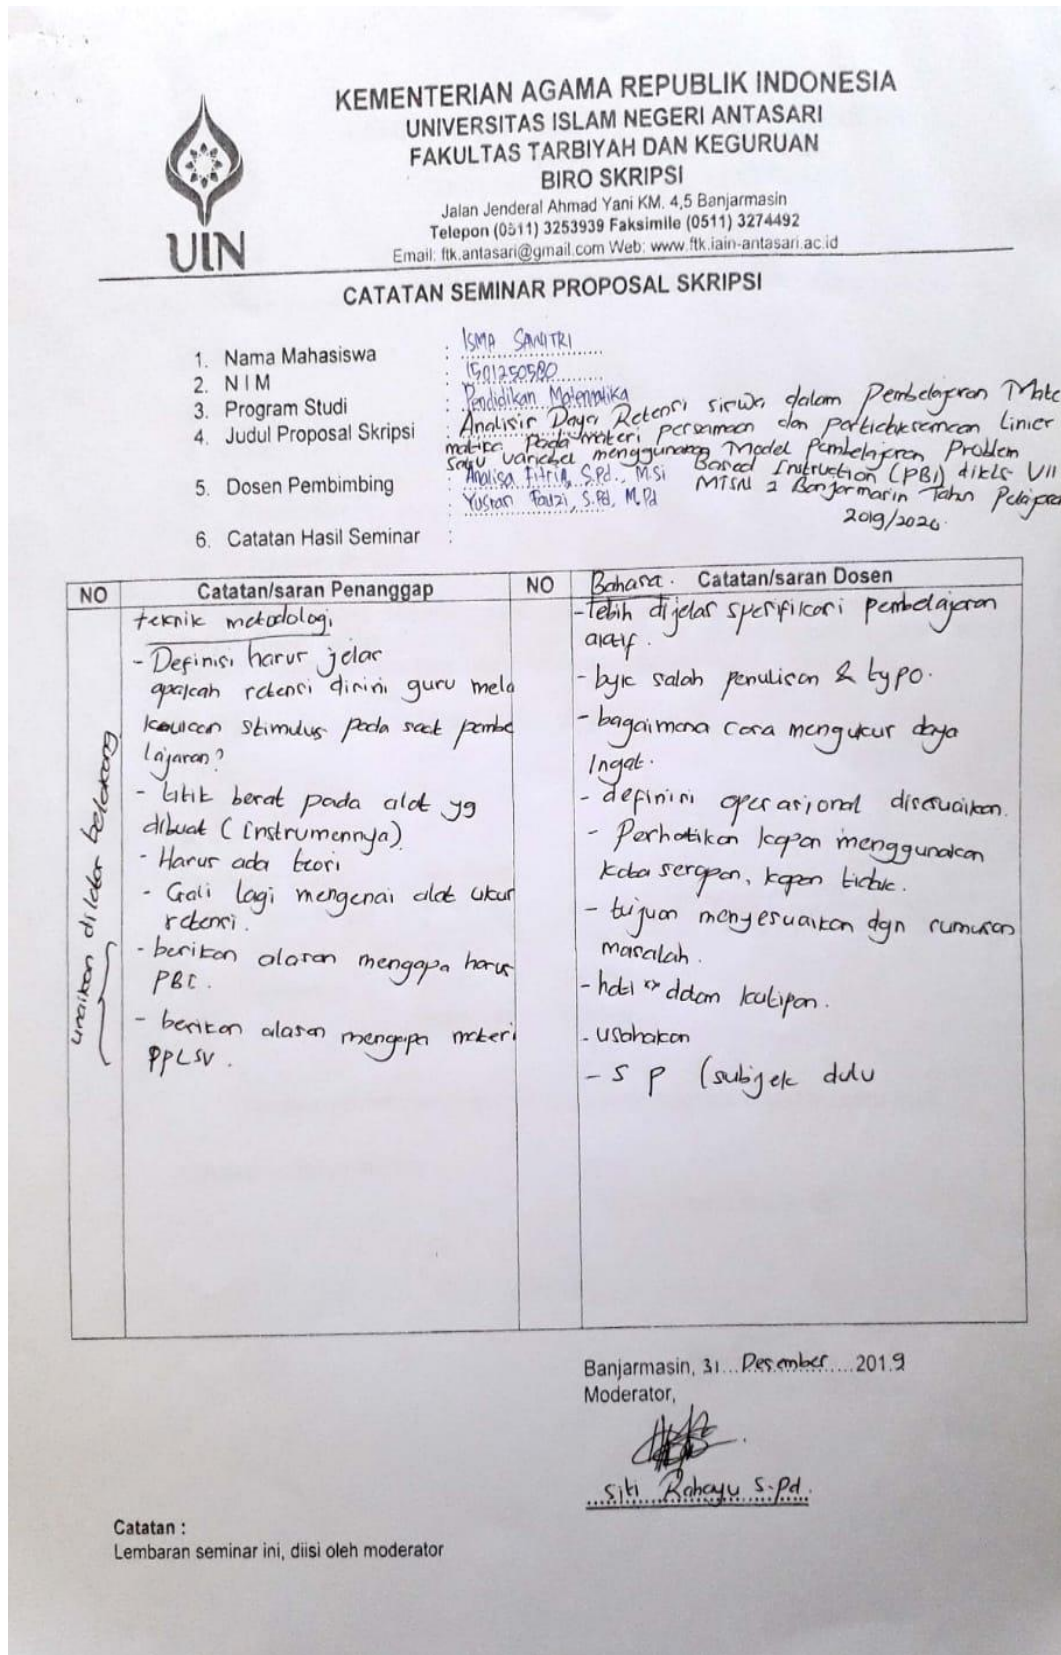 KEMENTERIAN AGAMA REPUBLIK INDONESIA
UNIVERSITAS ISLAM NEGERI ANTASARI
FAKULTAS TARBIYAH DAN KEGURUAN
BIRO SKRIPSI
Jalan Jenderal Ahmad Yani KM. 4,5 Banjarmasin
Telepon (0511) 3253939 Faksimile (0511) 3274492
Email: ftk.antasari@gmail.com Web: www.ftk.iain-antasari.ac.id
UIN
CATATAN SEMINAR PROPOSAL SKRIPSI
1. Nama Mahasiswa : ISMA SAWITRI
2. N I M : 1501250580
3. Program Studi : Pendidikan Matematika
4. Judul Proposal Skripsi : Analisis Daya Retensi siswa dalam Pembelajaran Mate
matika pada materi persamaan dan pertidaksamaan Linier
satu variabel menggunakan Model Pembelajaran Problem
Based Instruction (PBI) dikls VII
MTSN 2 Banjarmasin Tahun Pelajaran
2019/2020.
5. Dosen Pembimbing : Analisa Fitria, S.Pd., M.Si
: Yusran Fauzi, S.Pd, M.Pd
6. Catatan Hasil Seminar :
NO Catatan/saran Penanggap
teknik metodologi
- Definisi harus jelas
apakah retensi disini guru mela
kukan stimulus pada saat pembe
lajaran?
- titik berat pada alat yg
dibuat (Instrumennya)
- Harus ada teori
- Gali lagi mengenai alat ukur
retensi.
- berikan alasan mengapa harus
PBI.
- berikan alasan mengapa materi
PPLSV.
uraikan dilatar belakang
NO Bahasa. Catatan/saran Dosen
- lebih dijelas spesifikasi pembelajaran
- byk salah penulisan & typo.
- bagaimana cara mengukur daya
Ingat.
- definisi operasional disesuaikan.
- Perhatikan kapan menggunakan
kata serapan, kapan tidak.
- tujuan menyesuaikan dgn rumusan
masalah.
- hati" dalam kutipan.
- usahakan
- S P (subjek dulu
Banjarmasin, 31 Desember 2019
Moderator,
Siti Rahayu S.Pd.
Catatan :
Lembaran seminar ini, diisi oleh moderator